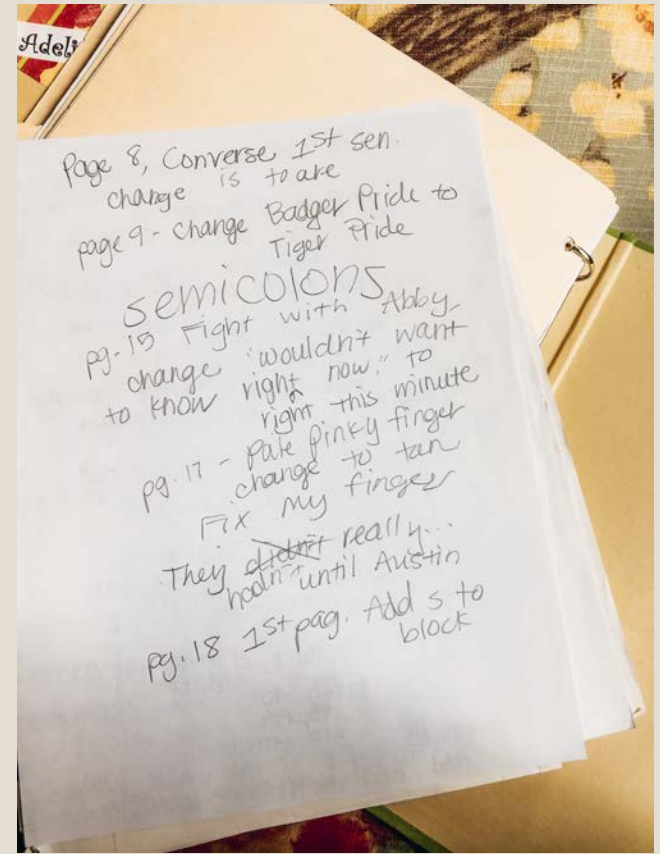 Adeli
Page 8, Converse 1st sen.
change is to are
page 9 - Change Badger Pride to
Tiger Pride
semicolons
pg. 15 Fight with Abby
change "wouldn't want
to know right now," to
right this minute
pg. 17 - pale pinky finger
change to tan
Fix my finger
They didn't really...
hadn't until Austin
pg. 18 1st pag. Add s to
block